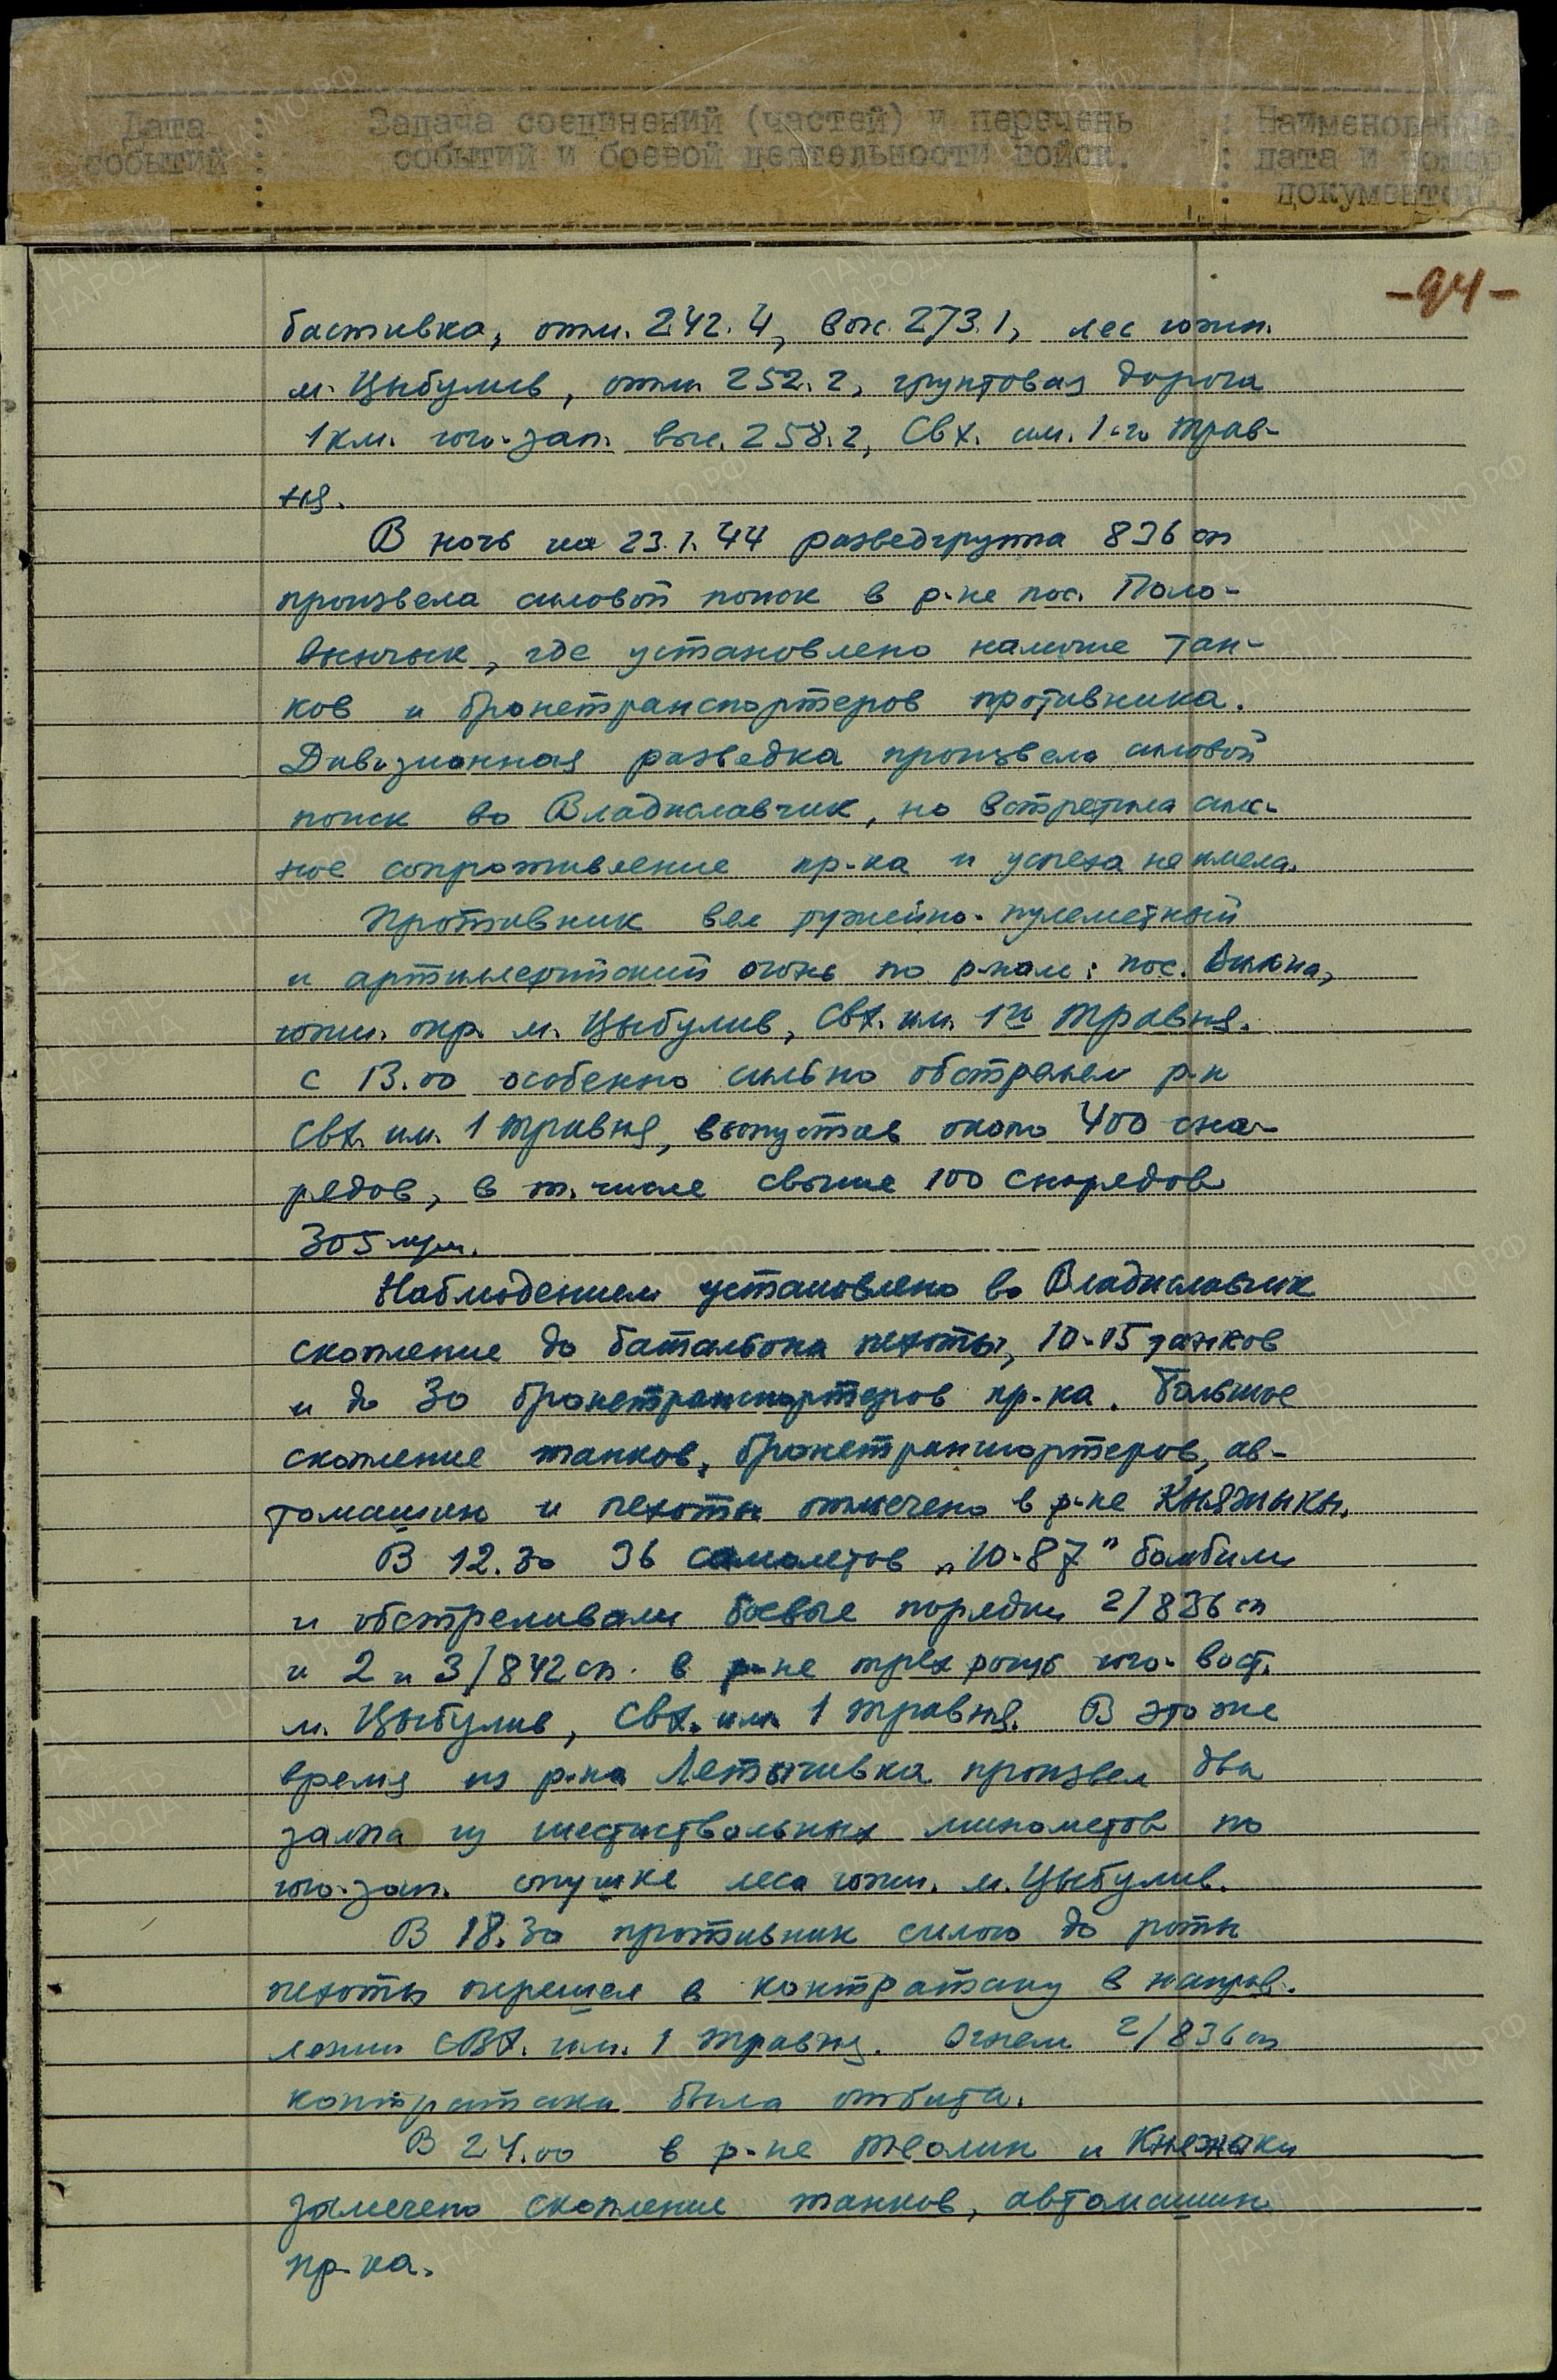 Дата : Задача соединений (частей) и перечень : Наименование,
событий : событий и боевой деятельности войск. : дата и номер
: : документов.
-94-
бастивка, отм. 242.4, выс. 273.1, лес южн.
м. Цыбулив, отм. 252.2, грунтовая дорога
1 км. юго-зап. выс. 258.2, Свх. им. 1-го трав-
ня.
В ночь на 23.1.44 разведгруппа 836 сп
произвела силовой поиск в р-не пос. Поло-
винчык, где установлено наличие тан-
ков и бронетранспортеров противника.
Дивизионная разведка произвела силовой
поиск во Владиславчик, но встретила силь-
ное сопротивление пр-ка и успеха не имела.
Противник вел ружейно-пулеметный
и артиллерийский огонь по р-нам: пос.
южн. окр. м. Цыбулив, Свх. им. 1го травня.
С 13.00 особенно сильно обстрелял р-н
Свх. им. 1 травня, выпустив около 400 сна-
рядов, в т. числе свыше 100 снарядов
305 мм.
Наблюдением установлено во Владиславчик
скопление до батальона пехоты, 10-15 танков
и до 30 бронетранспортеров пр-ка. Большое
скопление танков, бронетранспортеров, ав-
томашин и пехоты отмечено в р-не Княжики.
В 12.30 36 самолетов „Ю-87" бомбили
и обстреливали боевые порядки 2/836 сп
и 2 и 3/842 сп. в р-не трех рощ юго-вост.
м. Цыбулив, Свх. им 1 травня. В это же
время из р-на Летычивка произвел два
залпа из шестиствольных минометов по
юго-зап. опушке леса южн. м. Цыбулив.
В 18.30 противник силою до роты
пехоты перешел в контратаку в направ-
лении СВХ. им. 1 травня. Огнем 2/836 сп
контратака была отбита.
В 24.00 в р-не Теолин и Княжики
замечено скопление танков, автомашин
пр-ка.